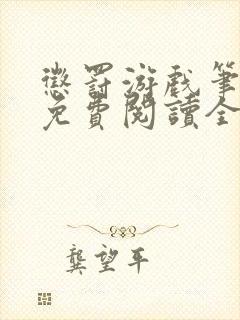 懲罰游戲筆
免費閱讀全
龔望平